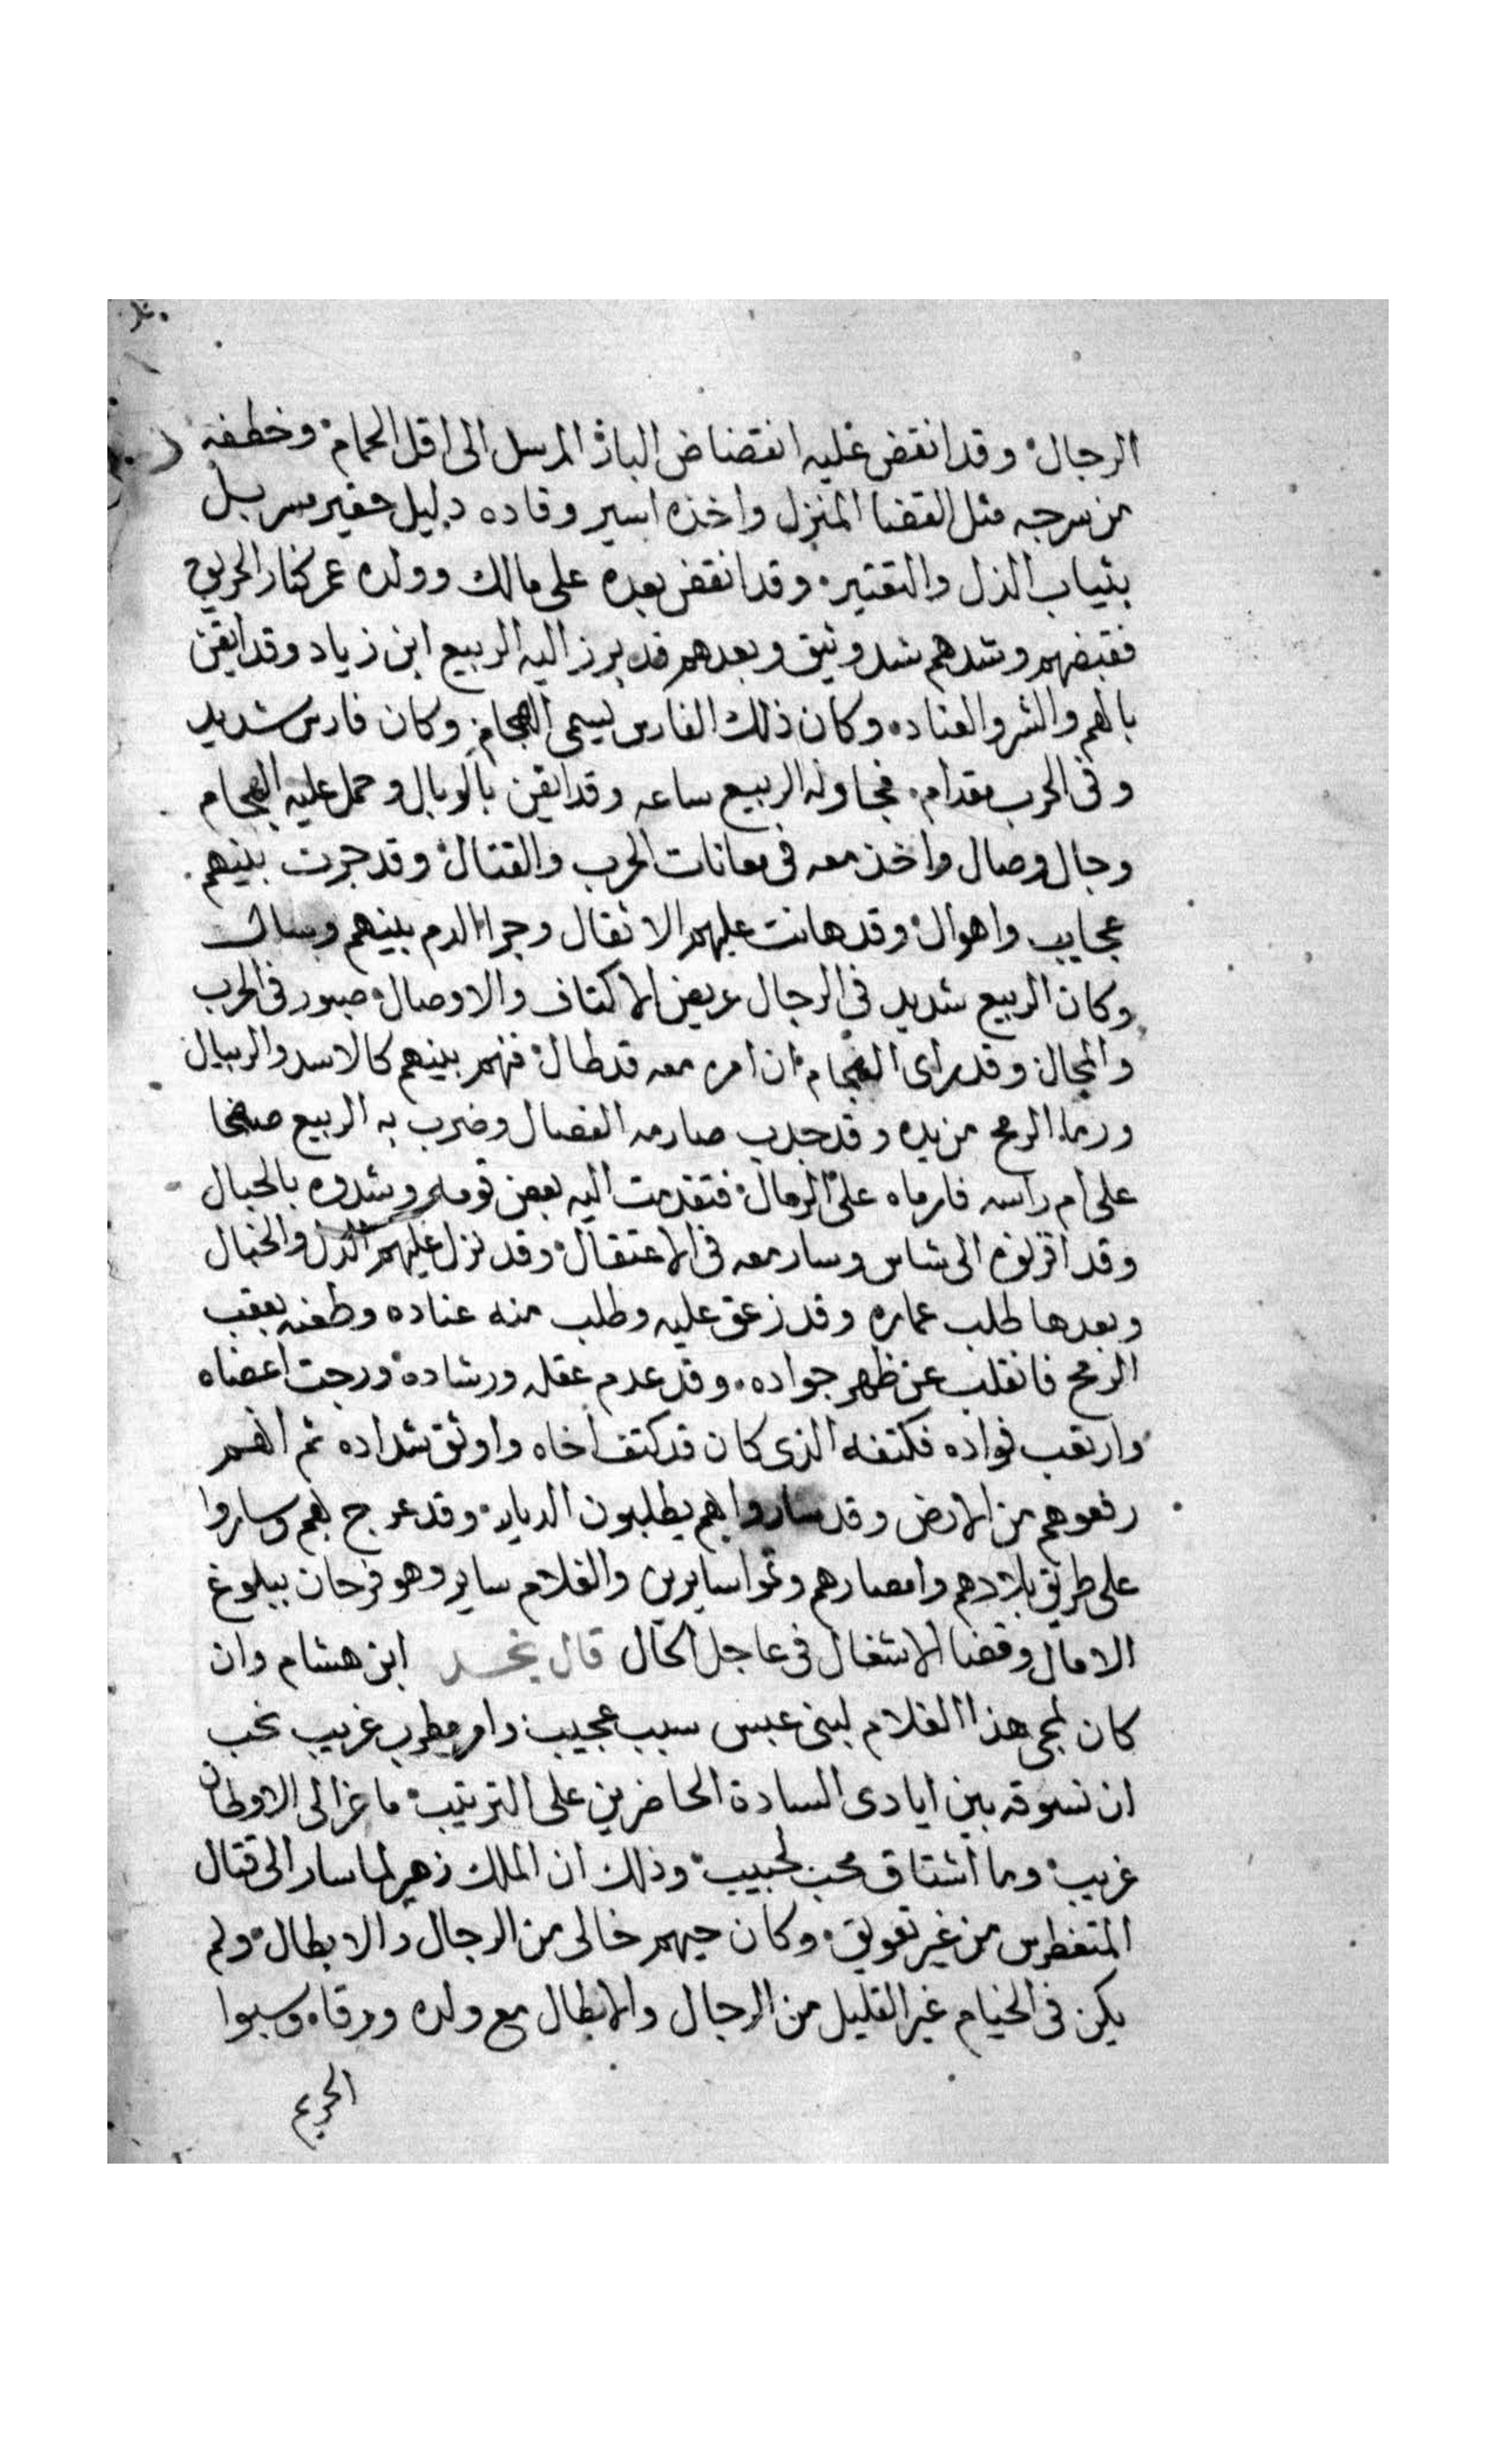 الرجال وقد انقض عليه انقضاض الباز المرسل الى اقل الحمام وخطفه
من سرجه مثل القضا المنزل واخذه اسير وقاده دليل حقير مسربل
بثياب الذل والتقتير وقد انقض بعده على مالك وولده عمر كنار الحريق
فقبضهم وشدهم شد وثيق وبعدهم قد برز اليه الربيع ابن زياد وقد ايقن
بالهم والشر والعناده وكان ذلك الفارس يسمى الهجام وكان فارس شديد
وفى الحرب مقدام فجاوله الربيع ساعه وقد ايقن بالوبال وحمل عليه الهجام
وجال وصال واخذ معه فى معانات الحرب والقتال وقد جرت بينهم
عجايب واهوال وقد هانت عليهم الاثقال وجرا الدم بينهم وسال
وكان الربيع شديد فى الرجال عريض الاكتاف والاوصال صبور فى الحرب
والمجال وقد راى الهجام ان امره معه قد طال فهم بينهم كالاسد والريبال
ورما الرمح من يده وقد جدب صارمه الفصال وضرب به الربيع صفحا
على ام راسه فارماه على الرمال فتقدمت اليه بعض قومه وشدوه بالحبال
وقد اقرنوه الى شاس وسار معه فى الاعتقال وقد نزل عليهم الذل والخبال
وبعدها طلب عماره وقد زعق عليه وطلب منه عناده وطعنه بعقب
الرمح فانقلب عن ظهر جواده وقد عدم عقله ورشاده ورجت اعضاه
وارتعب فواده فكتفه الذى كان قد كتف اخاه واوثق شداده ثم انهم
رفعوهم من الارض وقد ساروا بهم يطلبون الديار وقد عرج بهم وساروا
على طريق بلادهم وامصارهم وتموا سايرين والغلام ساير وهو فرحان ببلوغ
الامال وقضا الاشغال فى عاجل الحال قال نجد ابن هشام وان
كان لمجى هذا الغلام لبنى عبس سبب عجيب وامر مطرب غريب نحب
ان نسوقه بين ايادى السادة الحاضرين على الترتيب ما عز الى الاوطان
غريب وما اشتاق محب لحبيب وذلك ان الملك زهير لما سار الى قتال
المتغطرس من غير تعويق وكان حيهم خالى من الرجال والابطال ولم
يكن فى الخيام غير القليل من الرجال والابطال مع ولده وورقاه وسبوا
الحريم